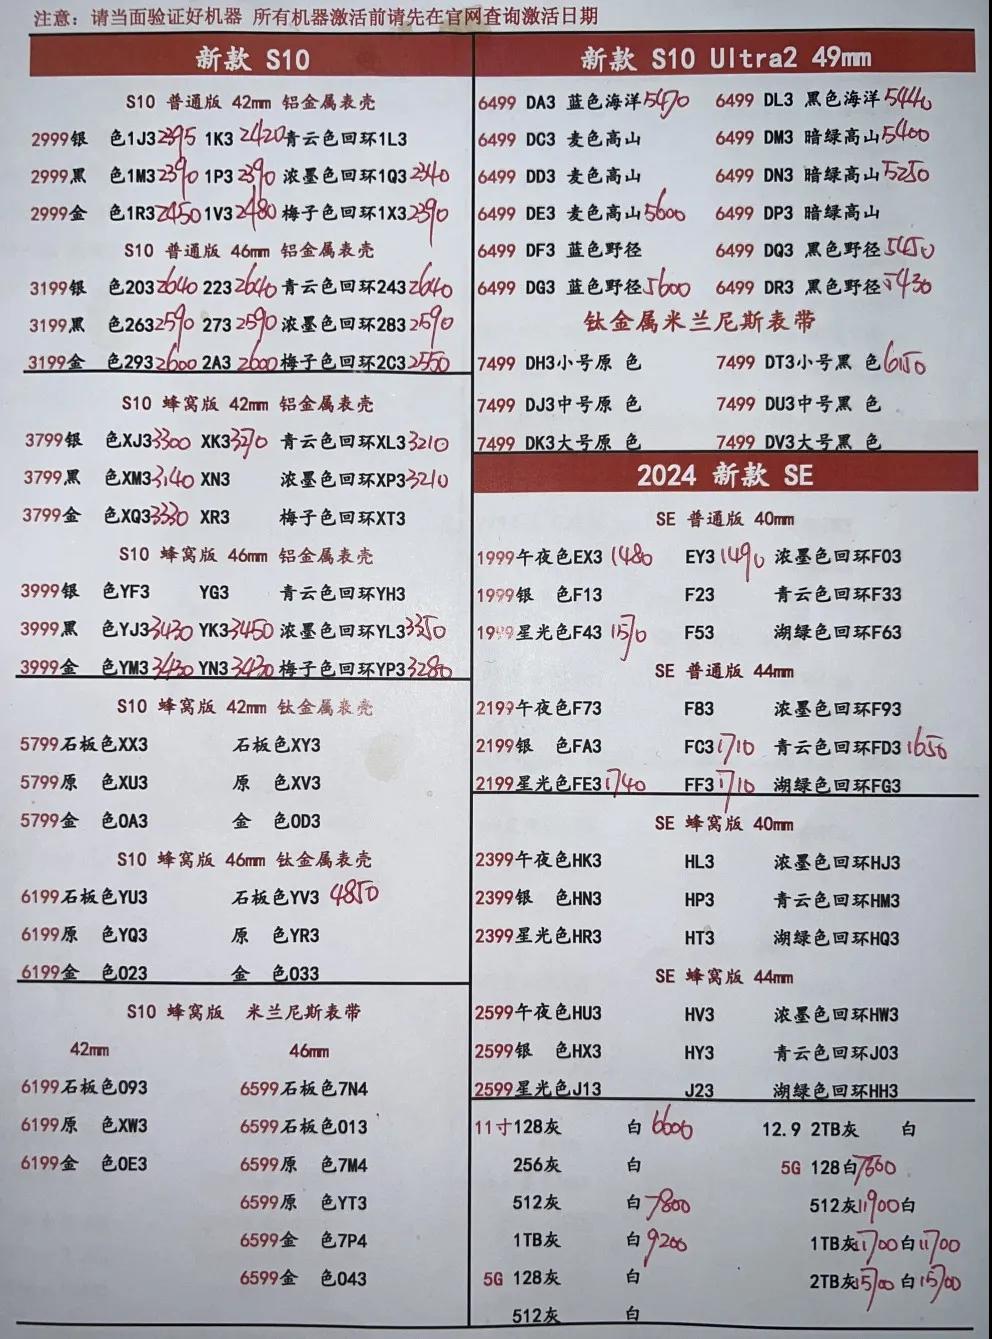 注意：请当面验证好机器 所有机器激活前请先在官网查询激活日期
新款 S10
S10 普通版 42mm 铝金属表壳
2999银 色1J3 2395 1K3 2420 青云色回环1L3
2999黑 色1M3 2390 1P3 2390 浓墨色回环1Q3 2340
2999金 色1R3 2450 1V3 2480 梅子色回环1X3 2390
S10 普通版 46mm 铝金属表壳
3199银 色203 2640 223 2640 青云色回环243 2640
3199黑 色263 2590 273 2590 浓墨色回环283 2590
3199金 色293 2600 2A3 2600 梅子色回环2C3 2550
S10 蜂窝版 42mm 铝金属表壳
3799银 色XJ3 3300 XK3 3270 青云色回环XL3 3210
3799黑 色XM3 3140 XN3 浓墨色回环XP3 3210
3799金 色XQ3 3330 XR3 梅子色回环XT3
S10 蜂窝版 46mm 铝金属表壳
3999银 色YF3 YG3 青云色回环YH3
3999黑 色YJ3 3430 YK3 3450 浓墨色回环YL3 3350
3999金 色YM3 3430 YN3 3430 梅子色回环YP3 3280
S10 蜂窝版 42mm 钛金属表壳
5799石板色XX3 石板色XY3
5799原 色XU3 原 色XV3
5799金 色0A3 金 色0D3
S10 蜂窝版 46mm 钛金属表壳
6199石板色YU3 石板色YV3 4850
6199原 色YQ3 原 色YR3
6199金 色023 金 色033
S10 蜂窝版 米兰尼斯表带
42mm 46mm
6199石板色093 6599石板色7N4
6199原 色XW3 6599石板色013
6199金 色0E3 6599原 色7M4
6599原 色YT3
6599金 色7P4
6599金 色043
新款 S10 Ultra2 49mm
6499 DA3 蓝色海洋 5470 6499 DL3 黑色海洋 5440
6499 DC3 麦色高山 6499 DM3 暗绿高山 5400
6499 DD3 麦色高山 6499 DN3 暗绿高山 5250
6499 DE3 麦色高山 5600 6499 DP3 暗绿高山
6499 DF3 蓝色野径 6499 DQ3 黑色野径 5450
6499 DG3 蓝色野径 5600 6499 DR3 黑色野径 5430
钛金属米兰尼斯表带
7499 DH3小号原 色 7499 DT3小号黑 色 6150
7499 DJ3中号原 色 7499 DU3中号黑 色
7499 DK3大号原 色 7499 DV3大号黑 色
2024 新款 SE
SE 普通版 40mm
1999午夜色EX3 1480 EY3 1490 浓墨色回环F03
1999银 色F13 F23 青云色回环F33
1999星光色F43 1570 F53 湖绿色回环F63
SE 普通版 44mm
2199午夜色F73 F83 浓墨色回环F93
2199银 色FA3 FC3 1710 青云色回环FD3 1650
2199星光色FE3 1740 FF3 1710 湖绿色回环FG3
SE 蜂窝版 40mm
2399午夜色HK3 HL3 浓墨色回环HJ3
2399银 色HN3 HP3 青云色回环HM3
2399星光色HR3 HT3 湖绿色回环HQ3
SE 蜂窝版 44mm
2599午夜色HU3 HV3 浓墨色回环HW3
2599银 色HX3 HY3 青云色回环J03
2599星光色J13 J23 湖绿色回环HH3
11寸128灰 白 6600 12.9 2TB灰 白
256灰 白 5G 128白 7600
512灰 白 7800 512灰 11900 白
1TB灰 白 9200 1TB灰 11700 白 11700
5G 128灰 白 2TB灰 15700 白 15700
512灰 白